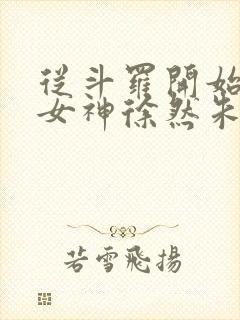 從斗羅開始
女神徐然朱
若雪飛揚